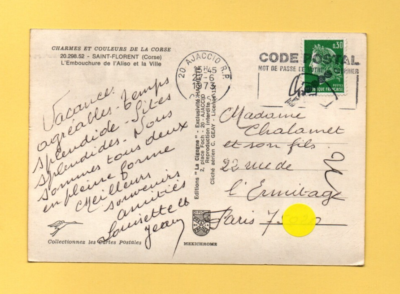 CHARMES ET COULEURS DE LA CORSE
20.298.52 - SAINT-FLORENT (Corse)
L'Embouchure de l'Aliso et la Ville
Vacances
agréables - temps
splendide - Sites
splendides. Nous
sommes tous deux
en pleine forme
Meilleurs
souvenirs
amitiés
Louisette et
Jean
Collectionnez les Cartes Postales
Editions "La Cigogne"
20 - AJACCIO
Reproduction interdite
Cliché aérien C. GEAY
MEXICHROME
20 AJACCIO R.P.
1973
CODE POSTAL
MOT DE PASSE
0,50
Madame
Chalamet
et son fils
22 rue de
l'Ermitage
Paris